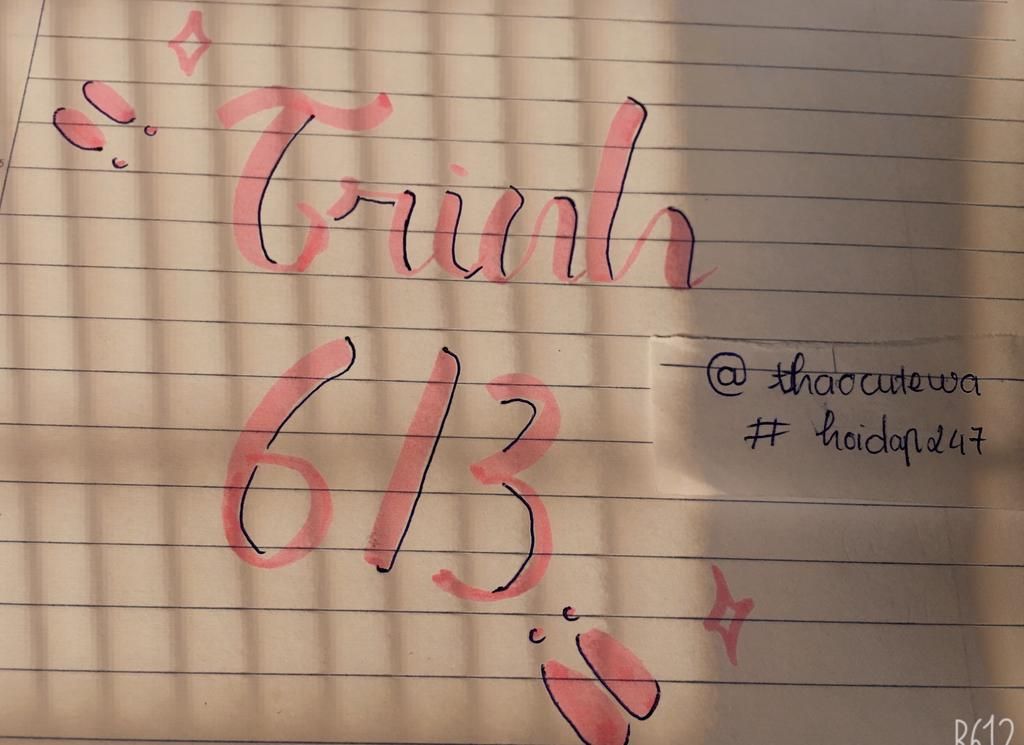 Trinh
6/3
@ thaocutewa
# hoidap247
R612